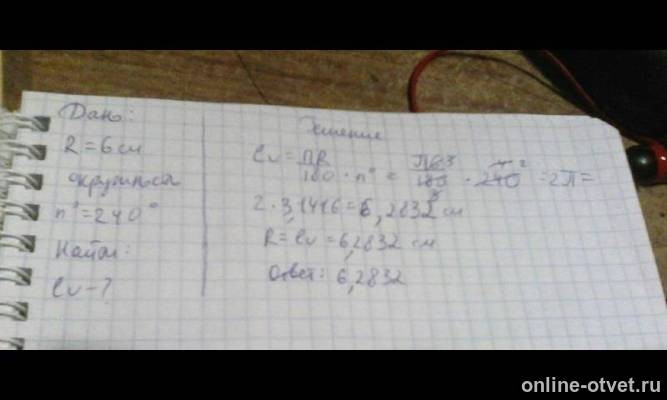 Дано:
R = 6 см
n° = 240°
Найти:
lυ - ?
Решение
lυ = ПR/180 · n° = П63/180 · 240 = 2П =
2 · 3,1416 = 6,2832 см
R = lυ = 6,2832 см
Ответ: 6,2832
online-otvet.ru